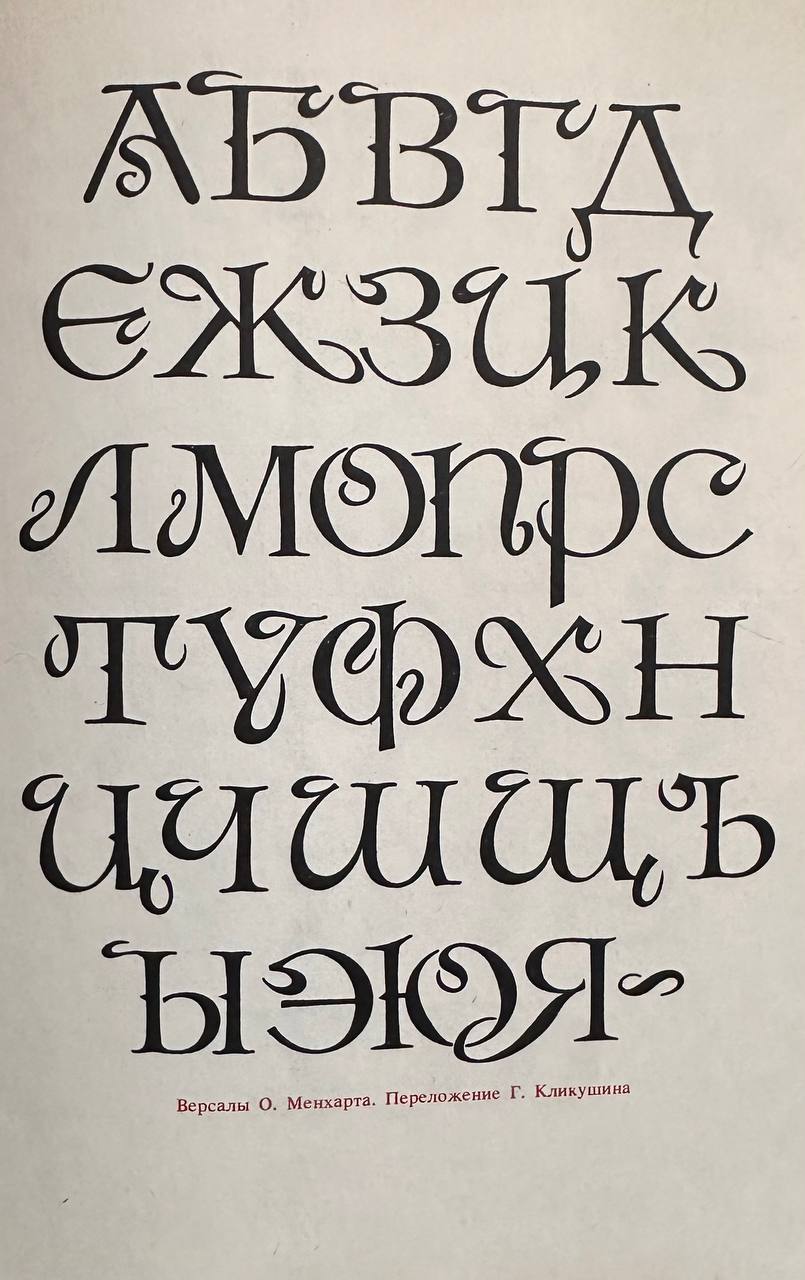 АБВГД
ЕЖЗИК
ЛМОПРС
ТУФХН
ЦЧШЩЪ
ЫЭЮЯ~
Версалы О. Менхарта. Переложение Г. Кликушина